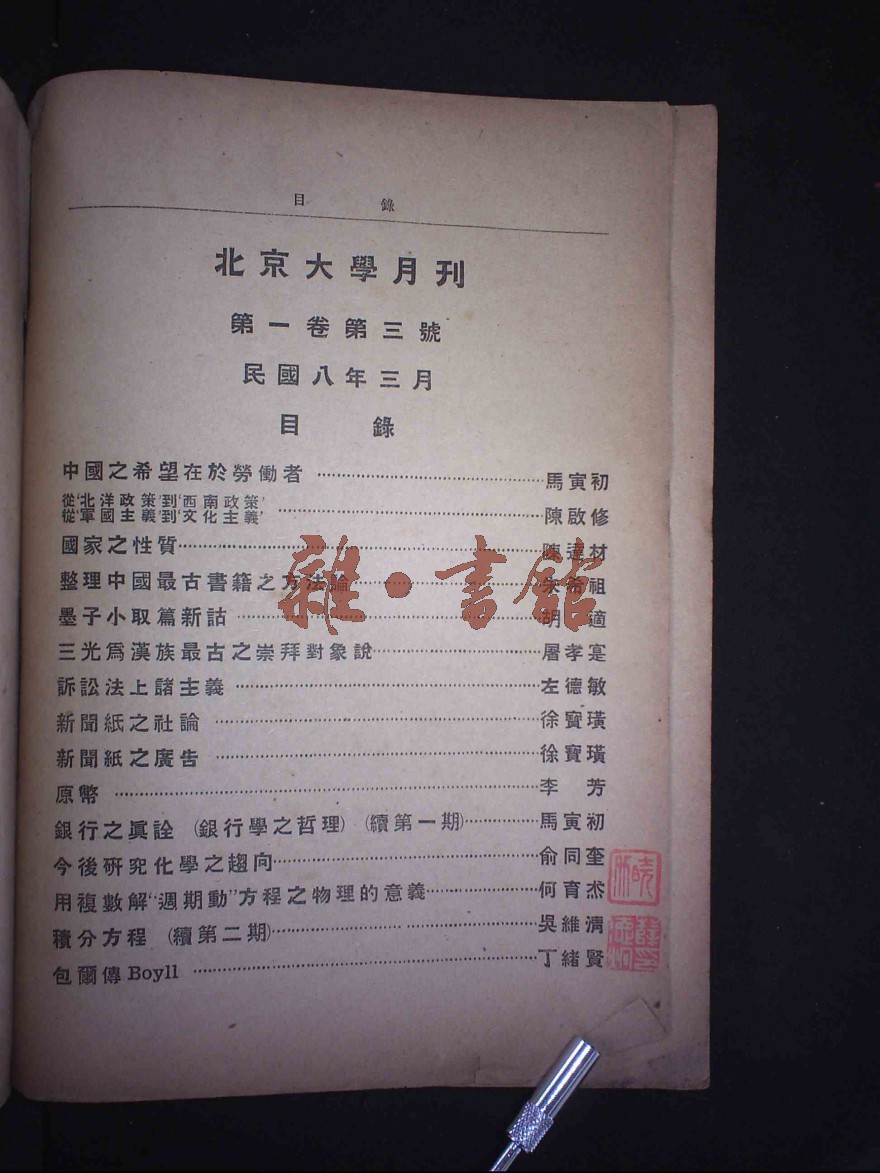 目 錄
北京大學月刊
第一卷第三號
民國八年三月
目 錄
中國之希望在於勞働者 馬寅初
從‘北洋政策’到‘西南政策’
從‘軍國主義’到‘文化主義’ 陳啟修
國家之性質 陳達材
整理中國最古書籍之方法論 朱希祖
墨子小取篇新詁 胡適
三光爲漢族最古之崇拜對象說 屠孝寔
訴訟法上諸主義 左德敏
新聞紙之社論 徐寶璜
新聞紙之廣告 徐寶璜
原幣 李芳
銀行之眞詮 (銀行學之哲理) (續第一期) 馬寅初
今後研究化學之趨向 俞同奎
用複數解“週期動”方程之物理的意義 何育杰
積分方程 (續第二期) 吳維清
包爾傳 Boyll 丁緒賢
雜·書館